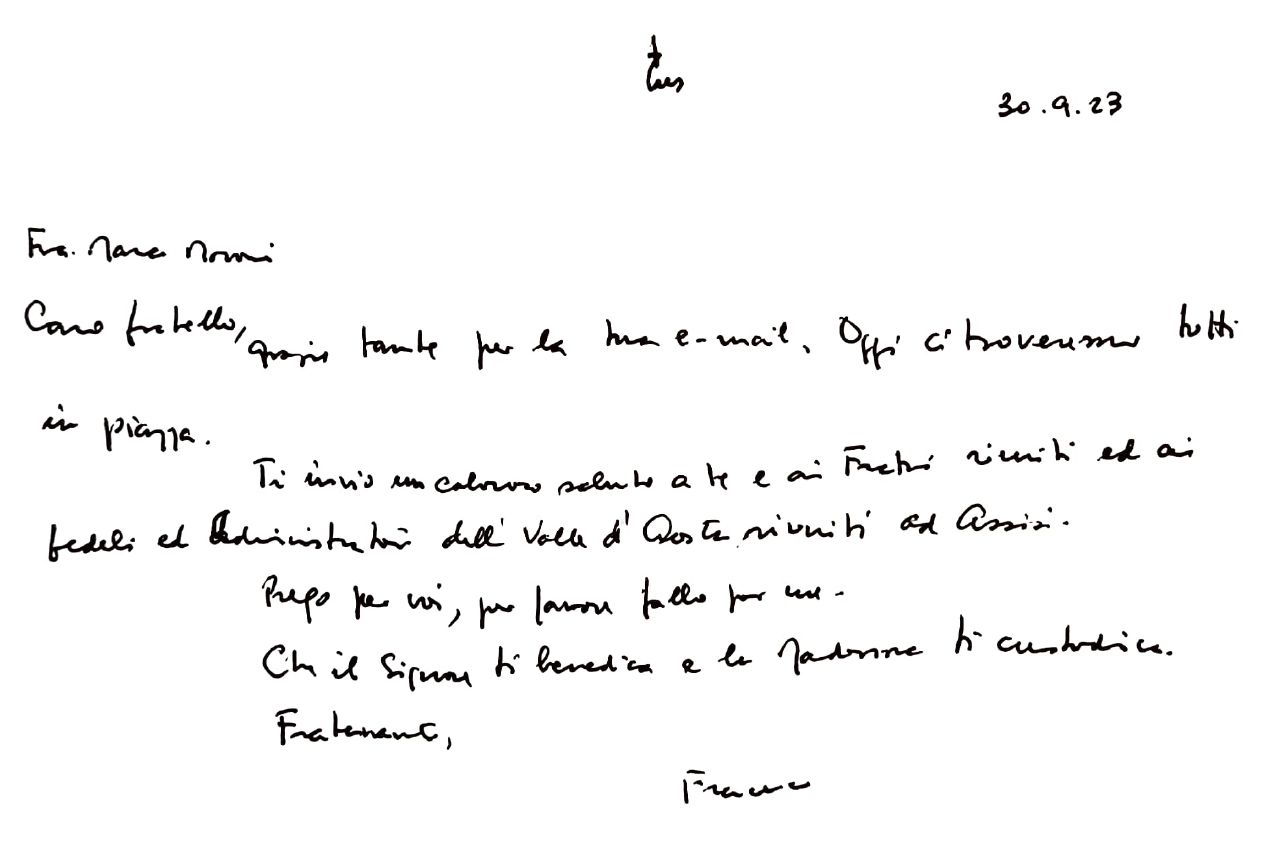 30.9.23
Fra. Marco Moroni
Caro fratello, grazie tante per la tua e-mail. Oggi ci troveremo tutti
in piazza.
Ti invio un caloroso saluto a te e ai Fratri riuniti ed ai
fedeli ed Administratori dell' Valle d'Aosta riuniti ad Assisi.
Prego per voi, per favore fallo per me.
Che il Signore ti benedica e la Madonna ti custodisca.
Fraternamente,